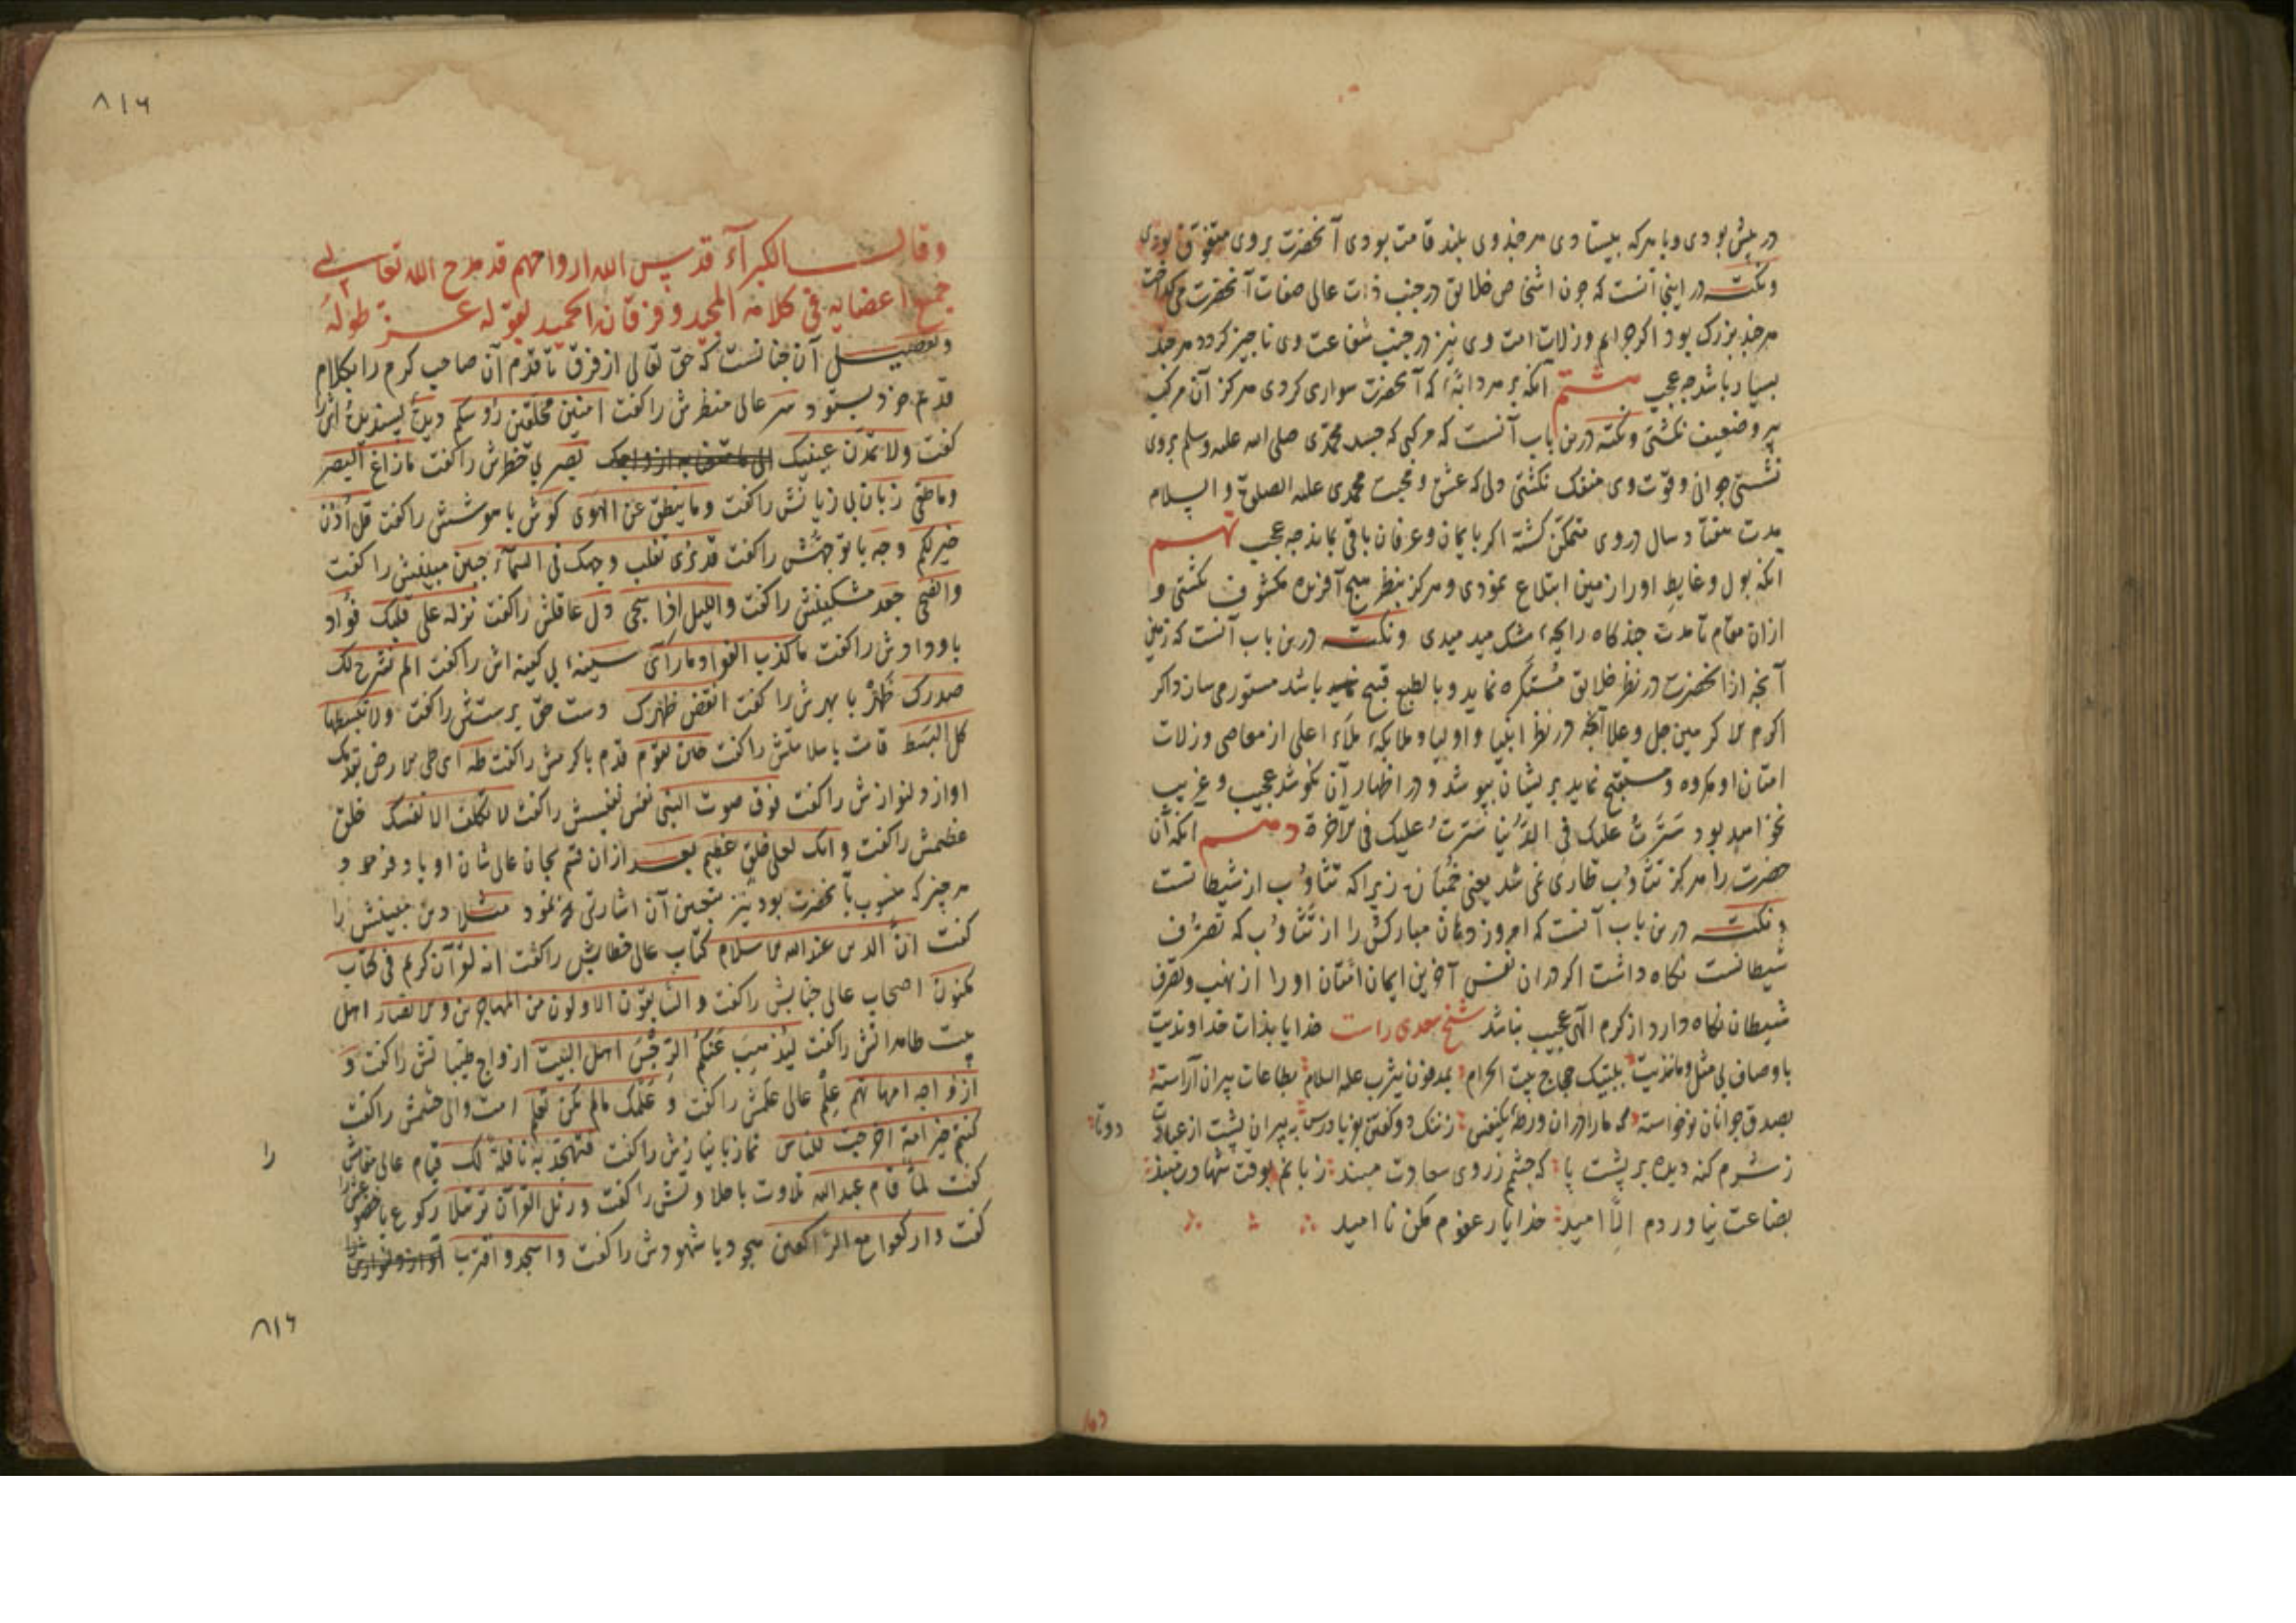 در پیش بودی و با هر که بیستادی هر چند وی بلند قامت بودی آنحضرت بر وی متفوق بودی
و نکته در اینجا آنست که چون اشخاص خلایق در جنب ذات عالی صفات آنحضرت می کداخت
هر چند بزرک بود اکر جرایم و زلات امت وی نیز در جنب شفاعت وی ناچیز کردد هر چند
بسیار باشد چه عجب هشتم آنکه بر هر دابّهٔ که آنحضرت سواری کردی هرکز آن مرکب
پیر و ضعیف نکشتی و نکته درین باب آنست که مرکبی که جسد محمّدی صلی الله علیه وسلم بروی
نشستی جوانی و قوّت وی منفک نکشتی دلی که عشق و محبت محمدی علیه الصلوة و السلام
مدت هفتاد سال در وی متمکّن کشته اکر با یمان و عرفان باقی بماند چه عجب نهم
آنکه بول و غایط او را زمین ابتلاع نمودی و هرکز بنظر هیچ آفریده مکشوف نکشتی و
ازان مقام تا مدت چند کاه رایحهٔ مشک میدمیدی و نکته درین باب آنست که زمین
آنچه از آنحضرت در نظر خلایق مستکره نماید و بالطبع قبیح باشد مستور می سازد اکر
اکرم الاکرمین جل و علا آنچه در نظر انبیا و اولیا و ملایکهٔ ملاء اعلی از معاصی و زلات
امتان او مکروه و مستقبح نماید بریشان بپوشد و در اظهار آن نکوشد عجیب و غریب
نخواهد بود سَتَرْتُ علیک فی الدُّنیا سَتَرتُ علیک فی الآخرة دهم آنکه آن
حضرت را هرکز تثاؤب طاری نمی شد یعنی خمیازه زیرا که تثاؤب از شیطانست
و نکته درین باب آنست که امروز دهان مبارکش را از تثاؤب که تصرّف
شیطانست نکاه داشت اکر در ان نفس آخرین ایمان امتان او را از نهب و تصرف
شیطان نکاه دارد از کرم الهی عجیب نباشد شیخ سعدی راست خدایا بذات خداوندیت
باوصاف بی مثل و مانندیت بلبیک حجاج بیت الحرام بمدفون یثرب علیه السلام بطاعات پیران آراسته
بصدق جوانان نوخاسته که ما را در ان ورطهٔ یکنفس ز ننک دو کفتن بفریاد رس به پیران پشت از عبادت
دوتا
ز شرم کنه دیده بر پشت پا که چشمم ز روی سعادت مبند زبانم بوقت شهادت مبند
بضاعت نیاوردم الّا امید خدایا ز عفوم مکن نا امید
دوتا
۸۱۶
وقال الکبرآء قدس الله ارواحهم قد مدح الله تعالی
جمیع اعضایه فی کلامه المجید و فرقانه الحمید بقوله عز طوله
و تفصیل آن چنانست که حق تعالی از فرق تا قدم آن صاحب کرم را بکلام
قدیم خود بستود سر عالی منظرش را کفت امنین محلقین رؤسکم
کفت ولا تمدّن عینیک الی ما متعنا به ازواجک بصر بی خطرش را کفت ما زاغ البصر
و ما طغی زبان بی زیانش را کفت و ما ینطق عن الهوی کوش باهوشش را کفت قل اُذن
خیر لکم وجه با توجهش را کفت قد نری تقلب وجهک فی السمآء جبین مبینش را کفت
والضحی جعد مشکینش را کفت واللیل اذا سجی دل عاقلش را کفت نزله علی قلبک فؤاد
با ودادش را کفت ما کذب الفؤاد ما رآی سینهٔ بی کینه اش را کفت الم نشرح لک
صدرک ظهر با بهرش را کفت انقض ظهرک دست حق پرستش را کفت ولا تبسطها
کل البسط قامت با سلامتش را کفت حین تقوم قدم باکرمش را کفت طه ای طی الارض بقدمک
اواز دلنوازش را کفت فوق صوت النبی نفس نفیسش را کفت لا تکلف الا نفسک خلق
عظیمش را کفت و انک لعلی خلق عظیم بعد ازان قسم بجان عالی شان او یاد فرمود و
هر چیز که منسوب بآنحضرت بود نیز بتحسین آن اشارتی نمود مثلا دین مبینش را
کفت انّ الدین عند الله الاسلام کتاب عالی خطابش را کفت انه لقرآن کریم فی کتاب
مکنون اصحاب عالی جنابش را کفت و السّابقون الاولون من المهاجرین و الانصار اهل
بیت طاهرانش را کفت لیذهب عنکم الرّجس اهل البیت ازواج طیباتش را کفت و
ازواجه امهاتهم علم عالی علمش را کفت و علّمک ما لم تکن تعلم امت والی حشمش را کفت
کنتم خیر امة اخرجت للناس نماز با نیازش را کفت فتهجّد به نافلة لک قیام عالی مقامش
را
کفت لمّا قام عبدالله تلاوت با حلاوتش را کفت و رتل القرآن ترتیلا رکوع با خضوعش را
کفت و ارکعوا مع الرّاکعین سجود با شهودش را کفت و اسجد و اقترب
۸۱۶